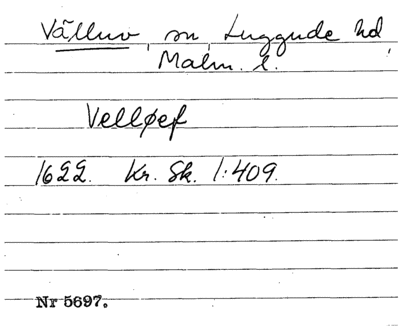 Välluv, sn, Luggude hd,
Malm. l.
Velløef
1622. Kr. Sk. 1:409.
Nr 5697.